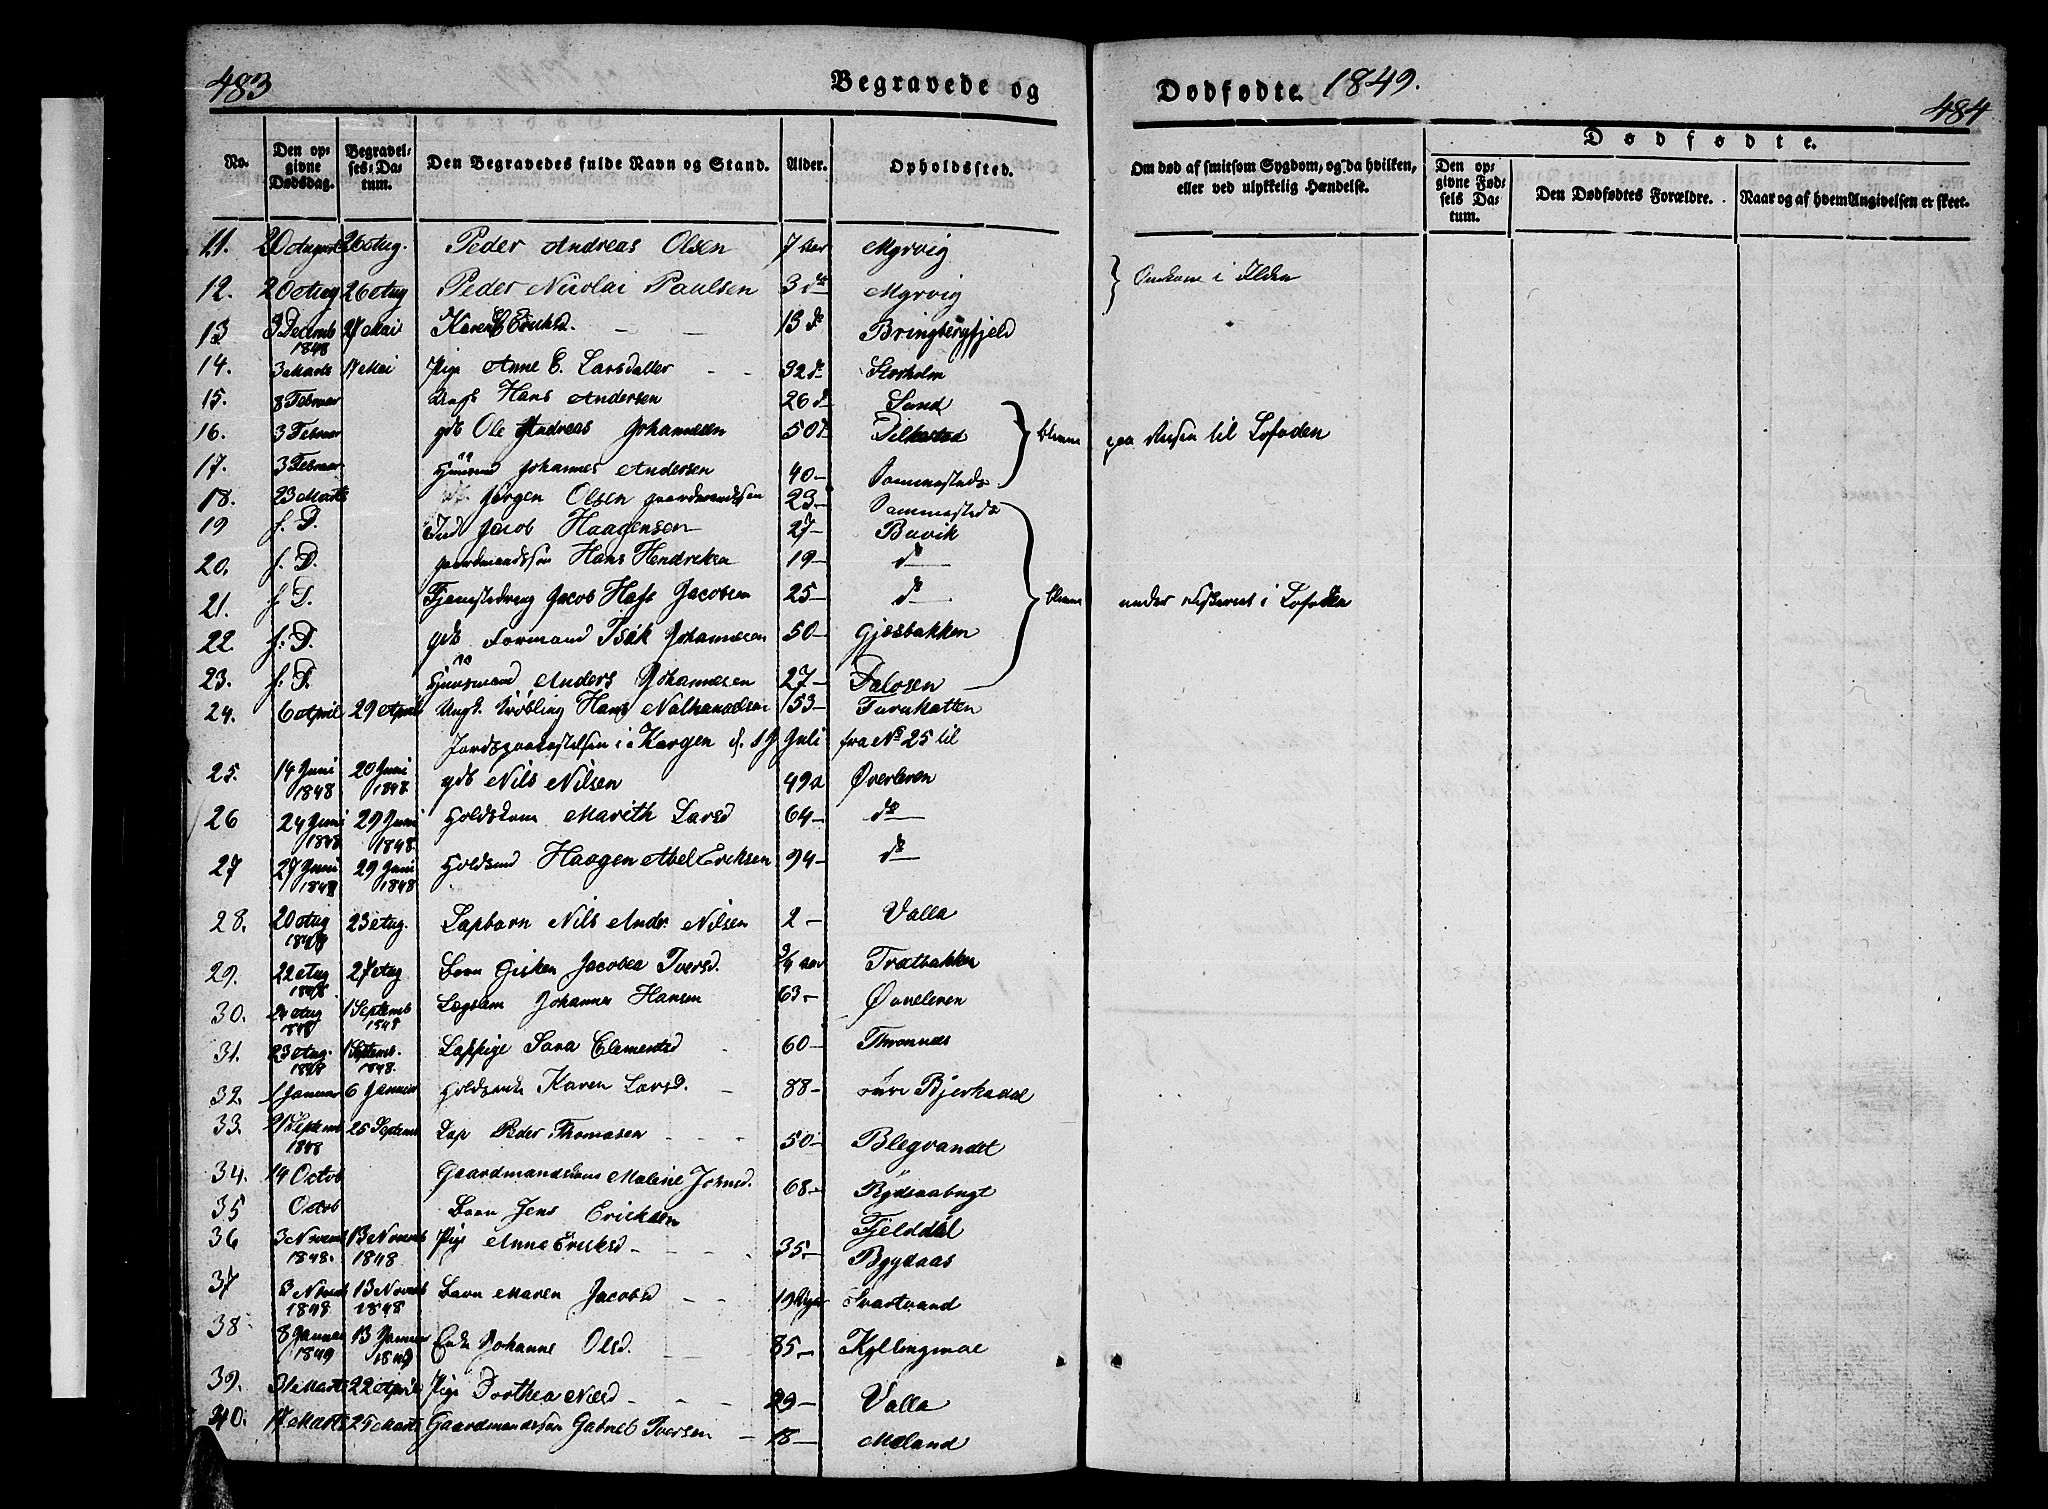 483
Begravede og
Dødfødte 1849.
484
No.
Den opgivne Dødsdag.
Begravelses-Datum.
Den Begravedes fulde Navn og Stand.
Alder.
Opholdssted.
Om død af smitsom Sygdom, og da hvilken, eller ved ulykkelig Hændelse.
Dødfødte.
Den opgivne Fødsels Datum.
Den Dødfødtes Forældre.
Naar og af hvem Angivelsen er skeet.
11. 20 August 26 Aug. Peder Andreas Olsen 7 Aar Myrvig
12. 20 Aug 26 Aug Peder Nicolai Paulsen 3 do Myrvig
Omkom i Ilden
13 3 Decemb 1848 27 Mai Karen E Eriksd. 13 do Bringbergfjeld
14. 3 Marts 17 Mai Pige Anne E. Larsdatter 32 do Storholm
15. 8 Februar Ungk Hans Andersen 26 do Sand
16. 3 Februar gdb Ole Andreas Johannesen 50 Silkestad
blevne paa Reisen til Lofoden
17. 3 Februar Huusmd Johannes Andersen 40 - Vammestads
18. 23 Marts Jørgen Olsen gaardmandssøn 23 - Vammestads
19 s. D. Ind Jacob Haagensen 27 - Buvik
20. s. D. gaardmandssøn Hans Hendriksen 19 - do
21. s. D. Tjenestedreng Jacob Hass Jacobsen 25 - do
blevne under Fiskeriet i Lofoden
22. s. D. gdb Formand Isak Johannesen 50 - Gjæsbakken
23. s. D. Huusmand Anders Johannesen 27 - Falosen
24. 6 April 29 April Ungk. Hans Nathanaelsen 53 - Furuhatten
Jordspaakastelsen i Kargen d. 19 Juli fra No 25 til
25. 14 Juni 1848 20 Juni 1848. gdb Nils Nilsen 49 a Øverleren
26 24 Juni 1848 29 Juni 1848. Holdskone Marith Larsd 64 - do
27 27 Juni 1848 29 Juni 1848 Holdsmd Haagen Abel Eriksen 94 - do
28. 20 Aug 1848 23 Aug. Lapbarn Nils Andr. Nilsen 2 - Valla
29. 22 Aug 1848 27 Aug Barn Gisken Jacobea Iversd. 3/4 aar Trætbakken
30. 24 Aug 1848 1 Septemb 1848 Lægslem Johannes Hansen 63 - Øverleren
31. 23 Aug. 1848 1 Septemb. 1848. Lappige Sara Clementsd 60 - Thronnes
32. 1 Januar 6 Januar Holdskone Karen Larsd. 88 - øvre Bjerkadal
33. 21 Septemb 1848 25 Septemb Lap Peder Thomasen 50 - Blegvandet
34. 14 Octob Gaardmandskone Malene Johnsd. 68 - Rydsaabugt
35 Octob Barn Jens Ericksen Fjelddal
36 3 Novemb 1848. 13 Novemb 1848 Pige Anne Eriksd 35 - Bygdaas
37 8 Novemb 1848 13 Novemb 1848 Barn Maren Jacobsd 19 Uger Svartvand
38 8 Januar 1849 13 Januar 1849 Enke Johanne Olsd. 85 - Kyllingmoe
39. 31 Marts 22 April Pige Dorthea Nilsd 29 - Valla
40. 17 Marts 25 Marts Gaardmandssøn Gabriel Iversen 18 - Mæland